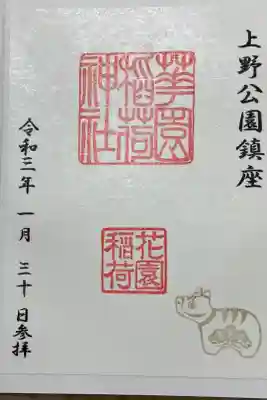 上野公園鎮座
華園
稲荷
神社
花園
稲荷
令和三年 一月 三十日参拝